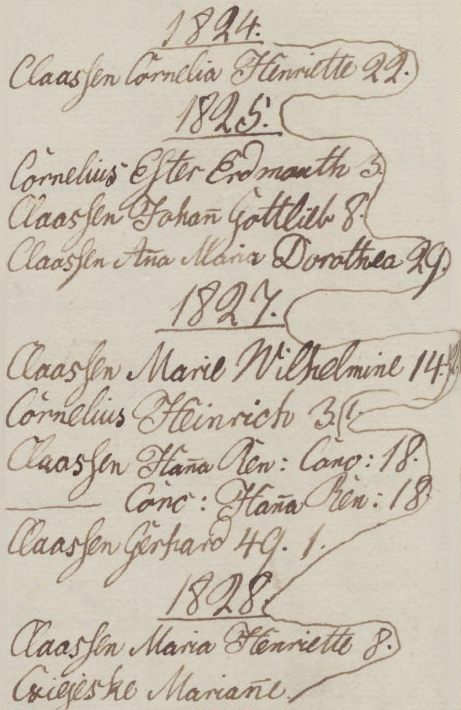 1824.
Claassen Cornelia Henriette 22.
1825.
Cornelius Ester Erdmouth 3.
Claassen Johan̅ Gottlieb 8.
Claassen An̅a Maria Dorothea 29.
1827.
Claassen Marie Wilhelmine 14.
Cornelius Heinrich 3.
Claassen Han̅a Ren: Caro: 18.
——— Caro: Han̅a Ren: 18.
Claassen Gerhard 49. 1.
1828.
Claassen Maria Henriette 8.
Marian̅e.